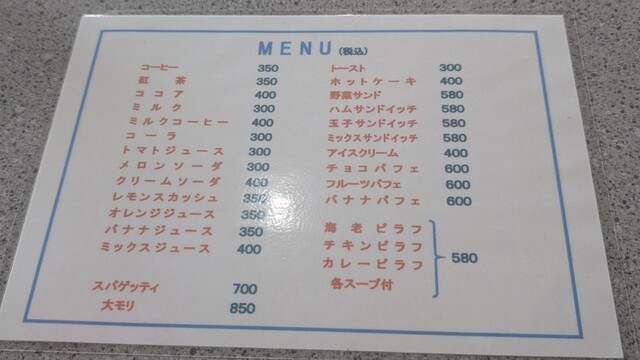 MENU(税込)
コーヒー 350
紅茶 350
ココア 400
ミルク 300
ミルクコーヒー 400
コーラ 300
トマトジュース 300
メロンソーダ 300
クリームソーダ 400
レモンスカッシュ 350
オレンジジュース 350
バナナジュース 350
ミックスジュース 400
スパゲッティ 700
大モリ 850
トースト 300
ホットケーキ 400
野菜サンド 580
ハムサンドイッチ 580
玉子サンドイッチ 580
ミックスサンドイッチ 580
アイスクリーム 400
チョコパフェ 600
フルーツパフェ 600
バナナパフェ 600
海老ピラフ
チキンピラフ
カレーピラフ 580
各スープ付